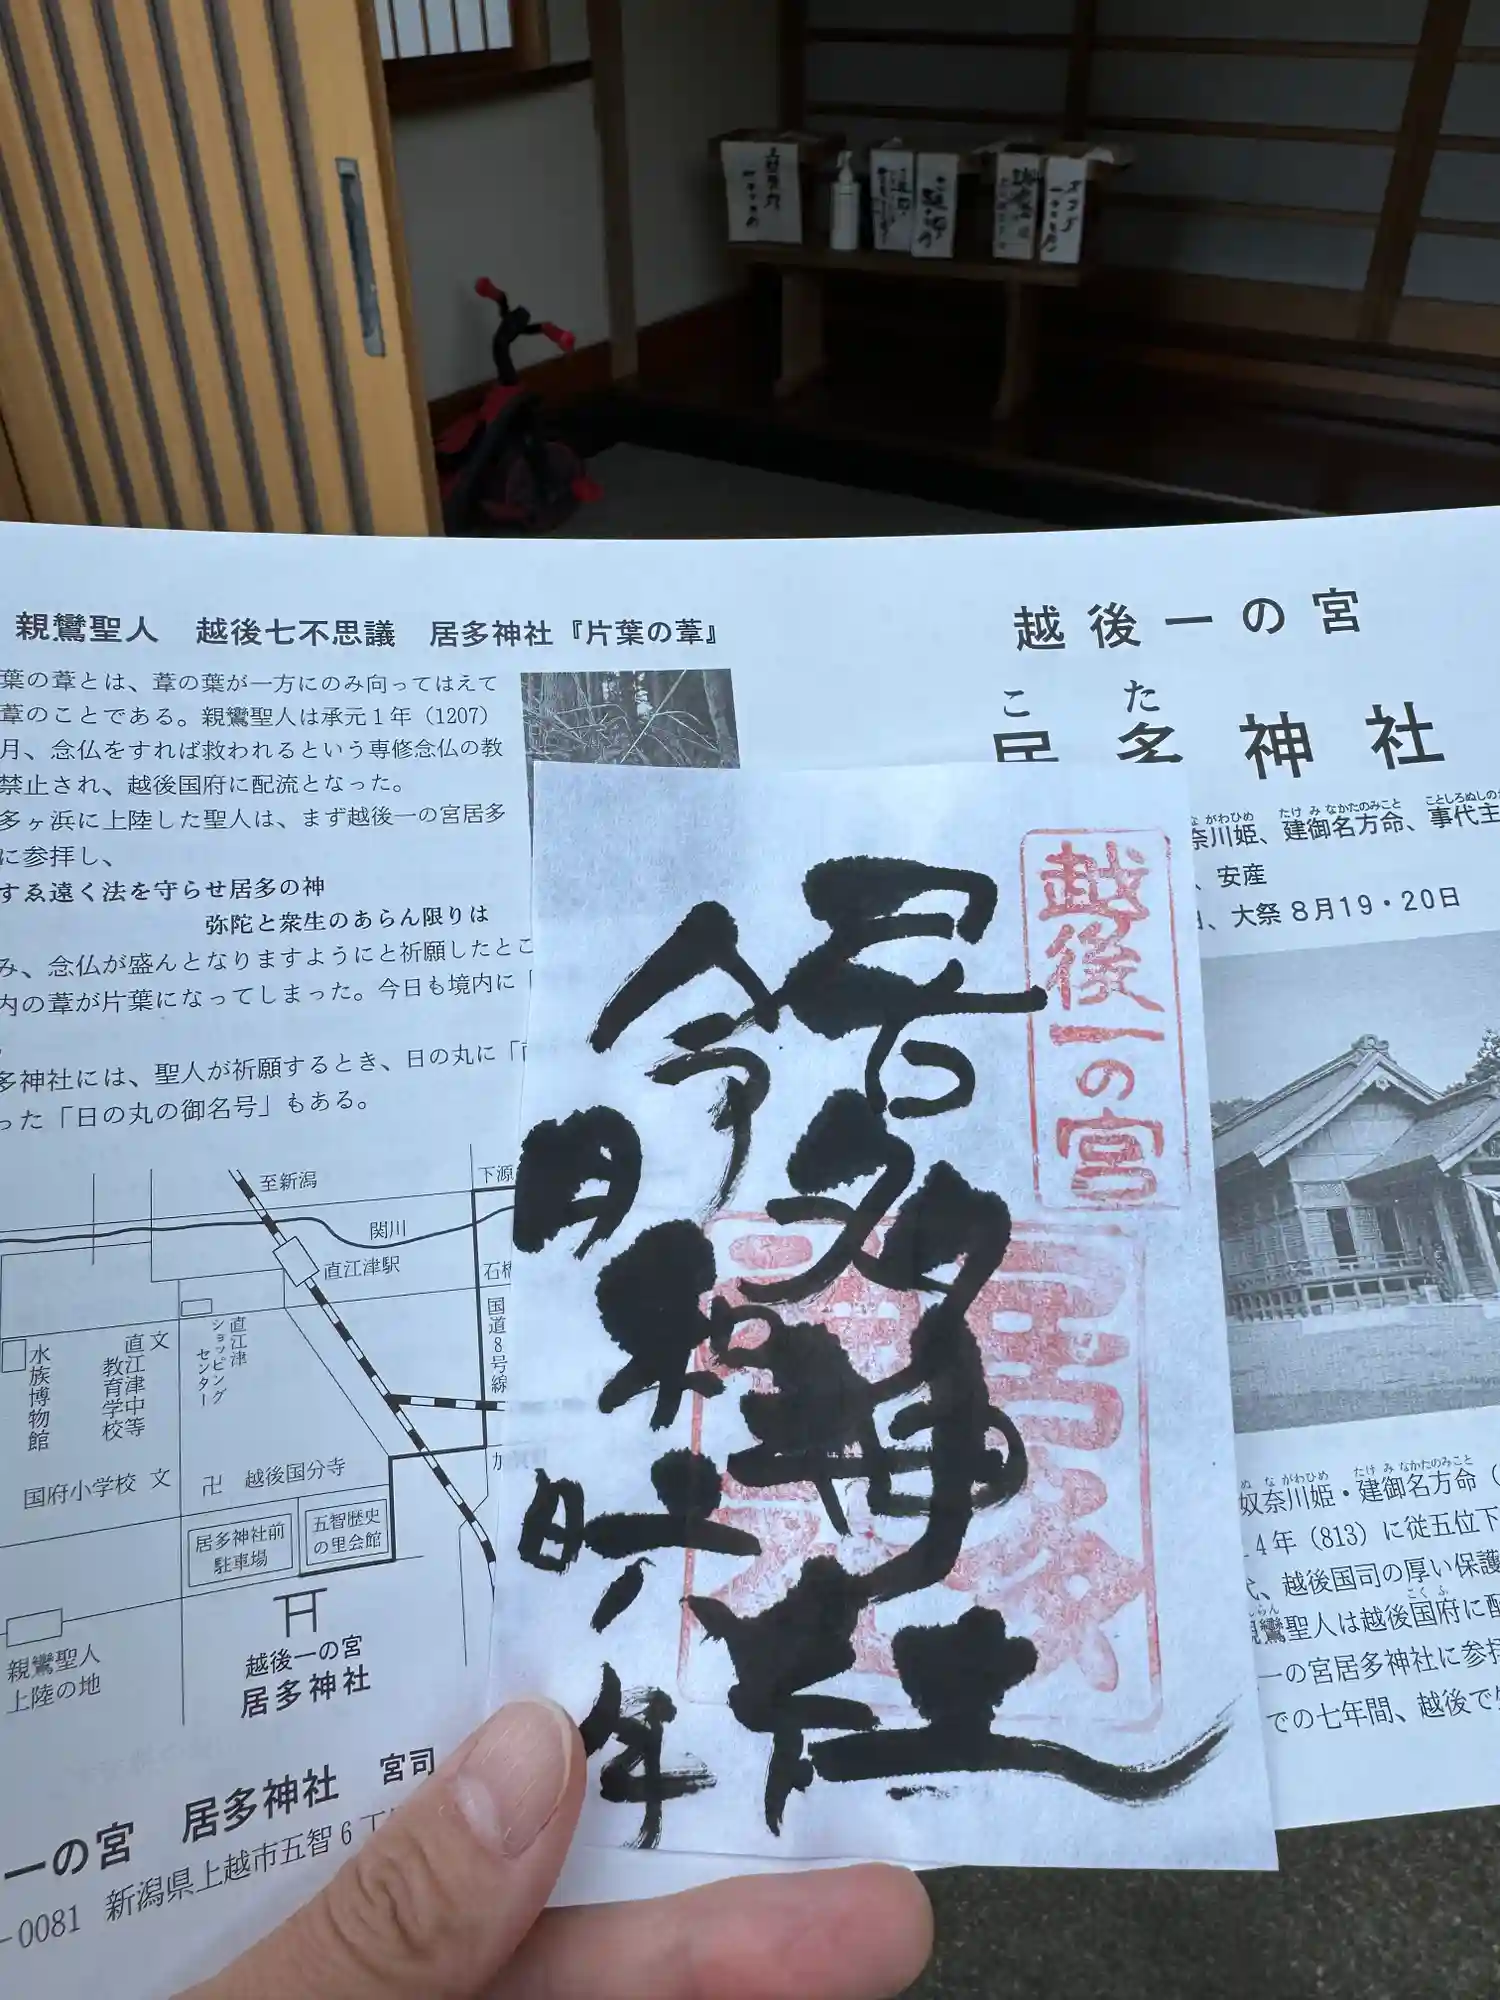 親鸞聖人 越後七不思議 居多神社『片葉の葦』
葉の葦とは、葦の葉が一方にのみ向ってはえて
葦のことである。親鸞聖人は承元1年（1207）
月、念仏をすれば救われるという専修念仏の教
禁止され、越後国府に配流となった。
多ヶ浜に上陸した聖人は、まず越後一の宮居多
に参拝し、
すゑ遠く法を守らせ居多の神
弥陀と衆生のあらん限りは
み、念仏が盛んとなりますようにと祈願したとこ
内の葦が片葉になってしまった。今日も境内に「
多神社には、聖人が祈願するとき、日の丸に「
った「日の丸の御名号」もある。
至新潟
下源
関川
直江津駅
石橋
国道8号線
直江津ショッピングセンター
直江津中等教育学校 文
水族博物館
国府小学校 文
卍 越後国分寺
加
居多神社前
駐車場
五智歴史
の里会館
親鸞聖人
上陸の地
越後一の宮
居多神社
一の宮 居多神社 宮司
-0081 新潟県上越市五智6丁
越後一の宮
こた
居多神社
ながわひめ たけみなかたのみこと ことしろぬしの
奈川姫、建御名方命、事代主
、安産
日、大祭8月19・20日
ぬながわひめ たけみなかたのみこと
奴奈川姫・建御名方命（
4年（813）に従五位下
、越後国司の厚い保護
らん こくふ
親鸞聖人は越後国府に配
一の宮居多神社に参拝
での七年間、越後で
越後一の宮
居多神社
令和六年